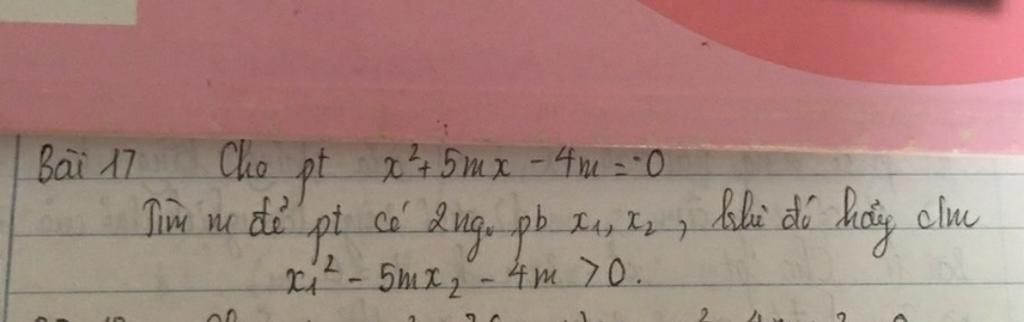 Bài 17 Cho pt x²+5mx - 4m = 0
Tìm m để pt có 2 ng. pb x₁, x₂, khi đó hãy clm
x₁² - 5mx₂ - 4m > 0.